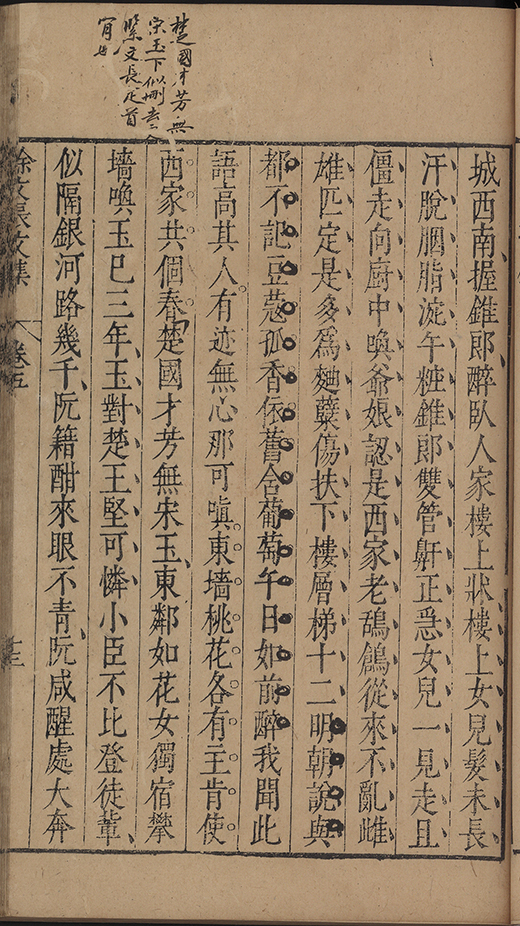 楚國才芳無
宋玉下似刪去二
文長
城西南握錐郎醉臥人家樓上牀樓上女兒髮未長
汗脫胭脂旋午粧錐郎雙管鼾正急女兒一見走且
僵走向厨中喚爺娘認是西家老鴿從來不亂雌
雄匹定是多為麯蘗傷扶下樓層梯十二明朝說與
都不記豆蔻孤香依舊含葡萄午日如前醉我聞此
語高其人有迹無心那可嗔東墻桃花各有主肯使
西家共個春楚國才芳無宋玉東鄰如花女獨宿攀
墻喚玉巳三年玉對楚王堅可憐小臣不比登徒輩
似隔銀河路幾千阮籍酣來眼不青阮咸醒處大奔
徐文長文集 卷五 十三